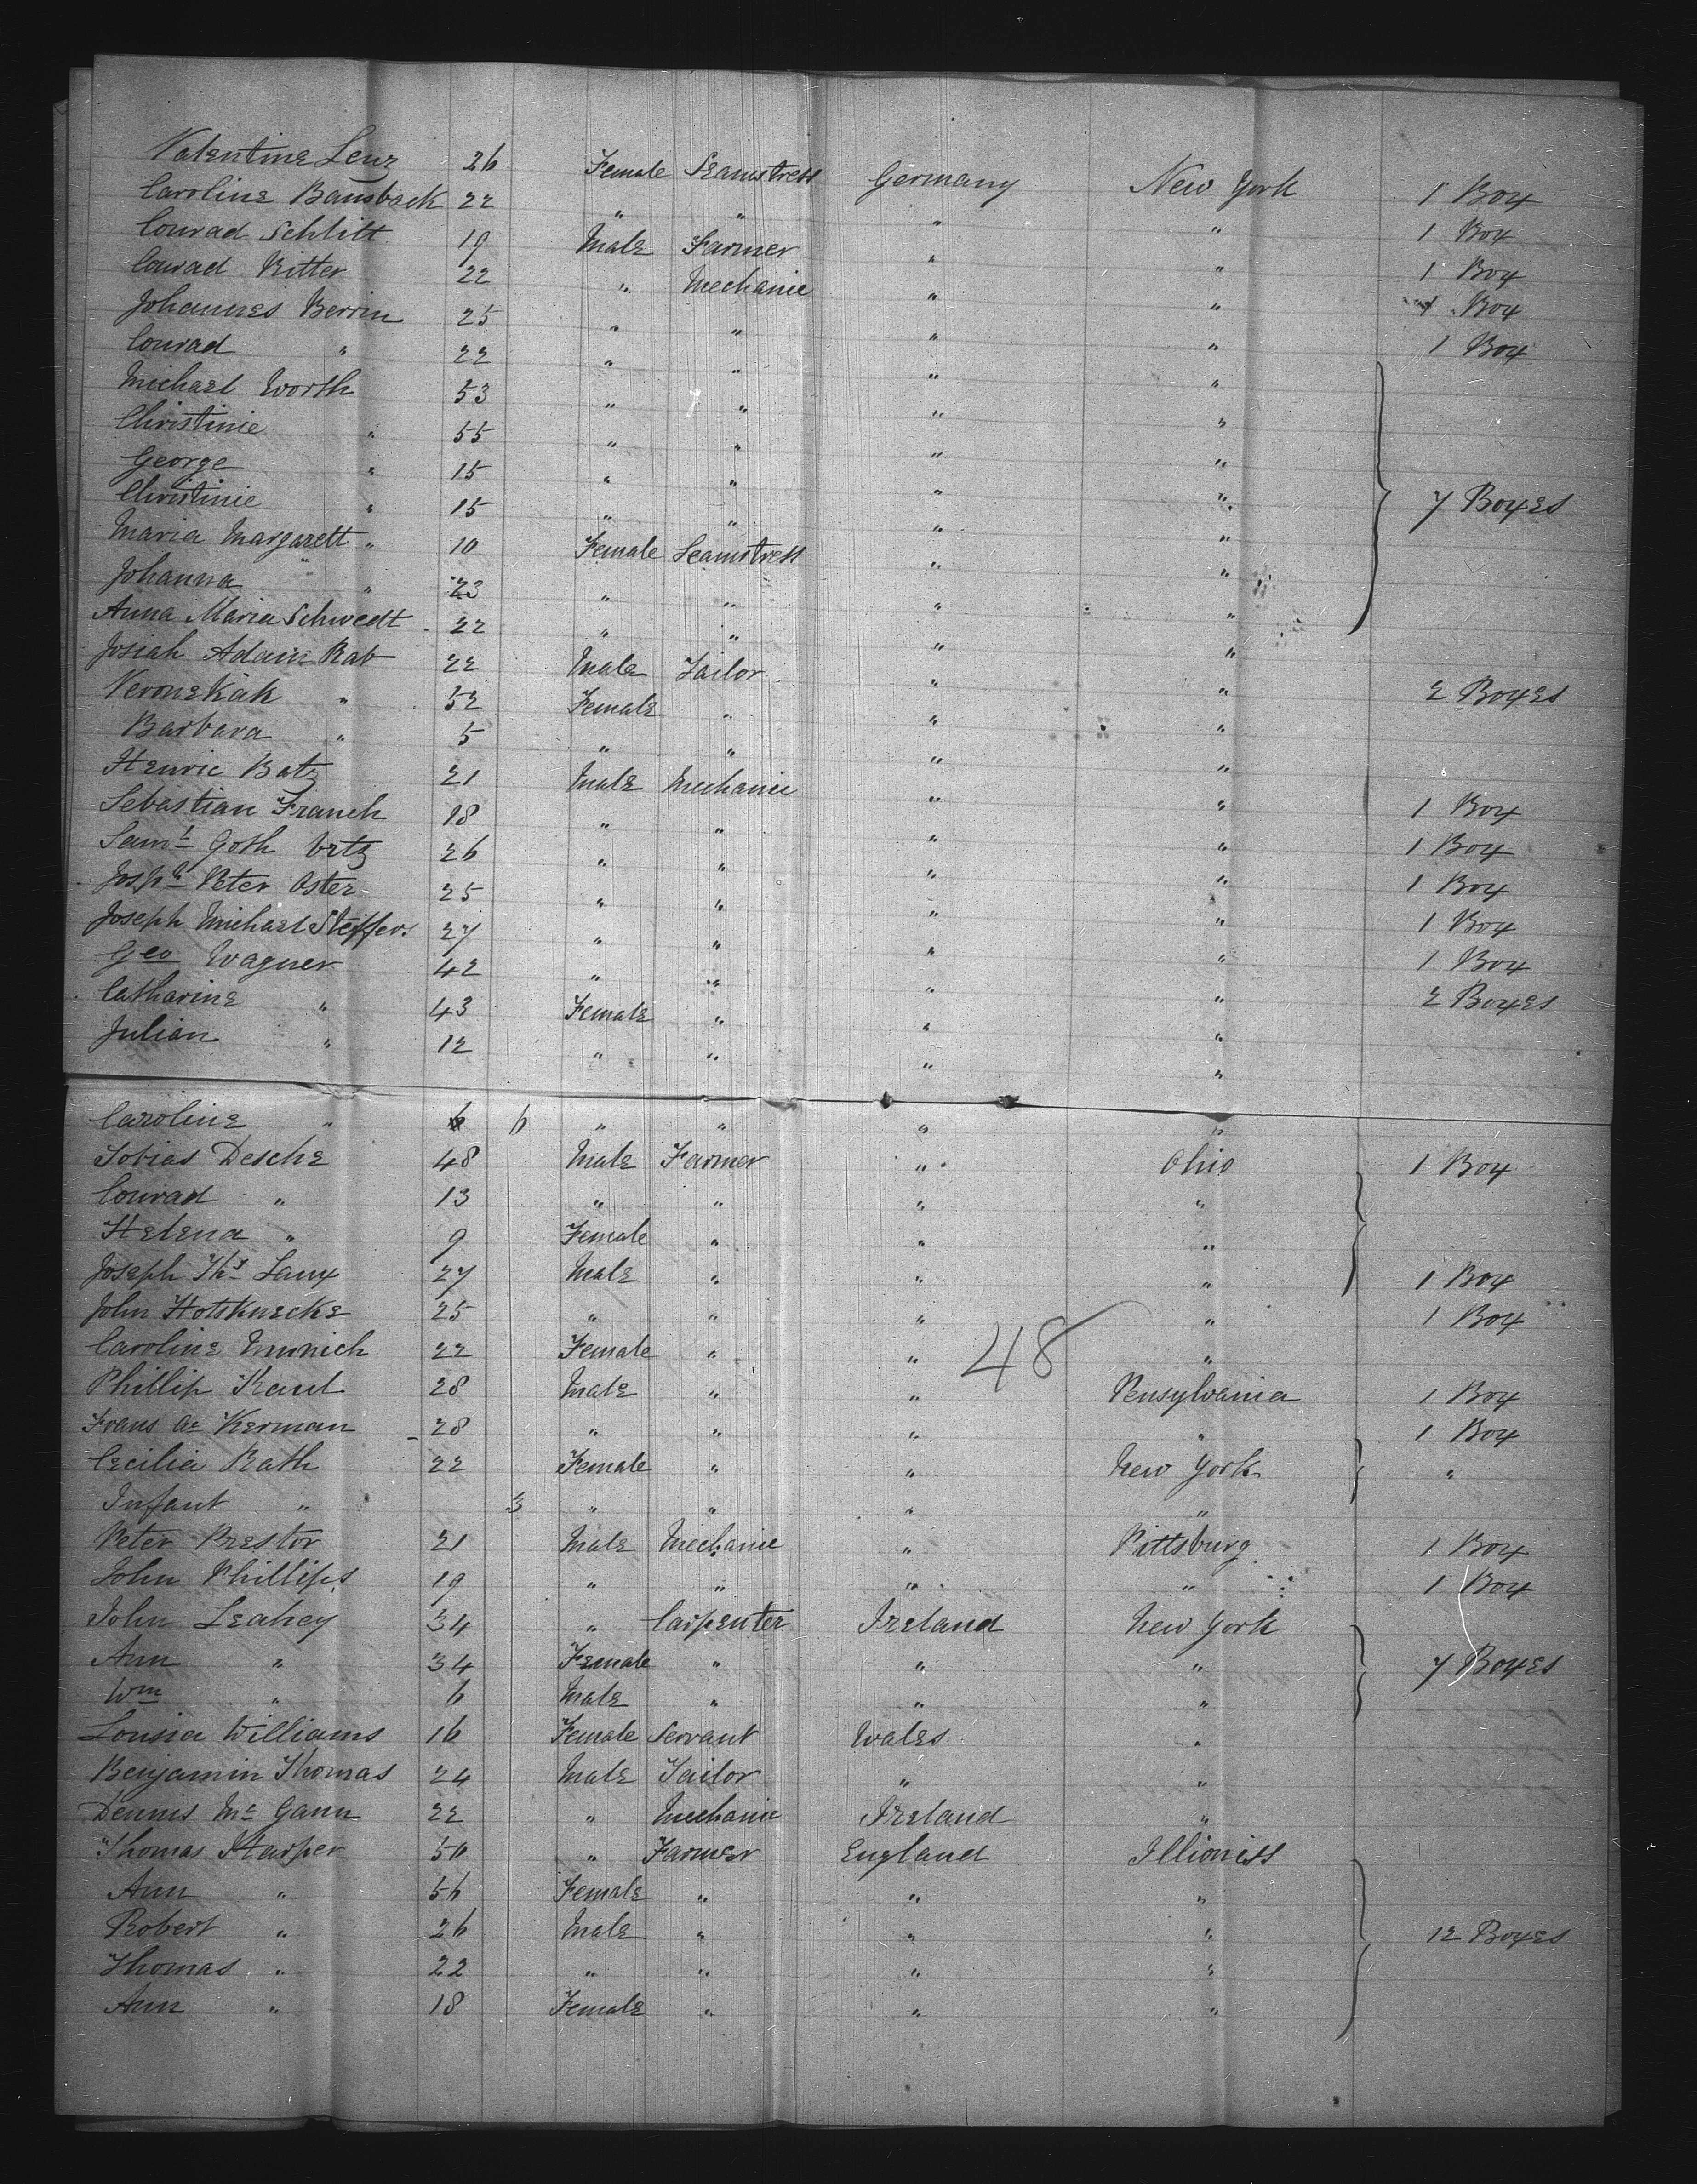 Valentine Lenz 26 Female Seamstress Germany New York 1 Box
Caroline Bansback 22 " " " " 1 Box
Conrad Schlitt 19 Male Farmer " " 1 Box
Conrad Ritter 22 " Mechanic " " 1 Box
Johannes Berrin 25 " " " " 1 Box
Conrad " 22 " " " "
Michael Worth 53 " " " "
Christinie " 55 " " " "
George " 15 " " " " 7 Boxes
Christinie " 15 " " " "
Maria Margarett " 10 Female Seamstress " "
Johanna " 23 " " " "
Anna Maria Schwedt 22 " " " "
Josiah Adam Rab 22 Male Tailor " " 2 Boxes
Veronekah " 52 Female " " "
Barbara " 5 " " " "
Henric Batz 21 Male Mechanic " " 1 Box
Sebastian Franch 18 " " " " 1 Box
Saml Goth 26 " " " " 1 Box
Josph Peter Oster 25 " " " " 1 Box
Joseph Michael Steffers 27 " " " " 1 Box
Geo Wagner 42 " " " " 2 Boxes
Catharine " 43 Female " " "
Julian " 12 " " " "
Caroline " 6 " " " "
Tobias Desche 48 Male Farmer " Ohio 1 Box
Conrad " 13 " " " "
Helena " 9 Female " " "
Joseph Ths Laux 27 Male " " " 1 Box
John Hotsknecke 25 " " " " 1 Box
Caroline Munich 22 Female " " "
48
Phillip Kaul 28 Male " " Pensylvania 1 Box
Frans Ae Kerman 28 " " " " 1 Box
Cecilia Rath 22 Female " " New York "
Infant " 3 " " " "
Peter Prestor 21 Male Mechanic " Pittsburg 1 Box
John Phillips 19 " " " " 1 Box
John Leahey 34 " Carpenter Ireland New York
Ann " 34 Female " " " 7 Boxes
Wm " 6 Male " " "
Lousia Williams 16 Female Servant Wales "
Benjamin Thomas 24 Male Tailor " "
Dennis Mc Gann 22 " Mechanic Ireland "
Thomas Harper 50 " Farmer England Illioniss
Ann " 56 Female " " "
Robert " 26 Male " " " 12 Boxes
Thomas " 22 " " " "
Ann " 18 Female " " "